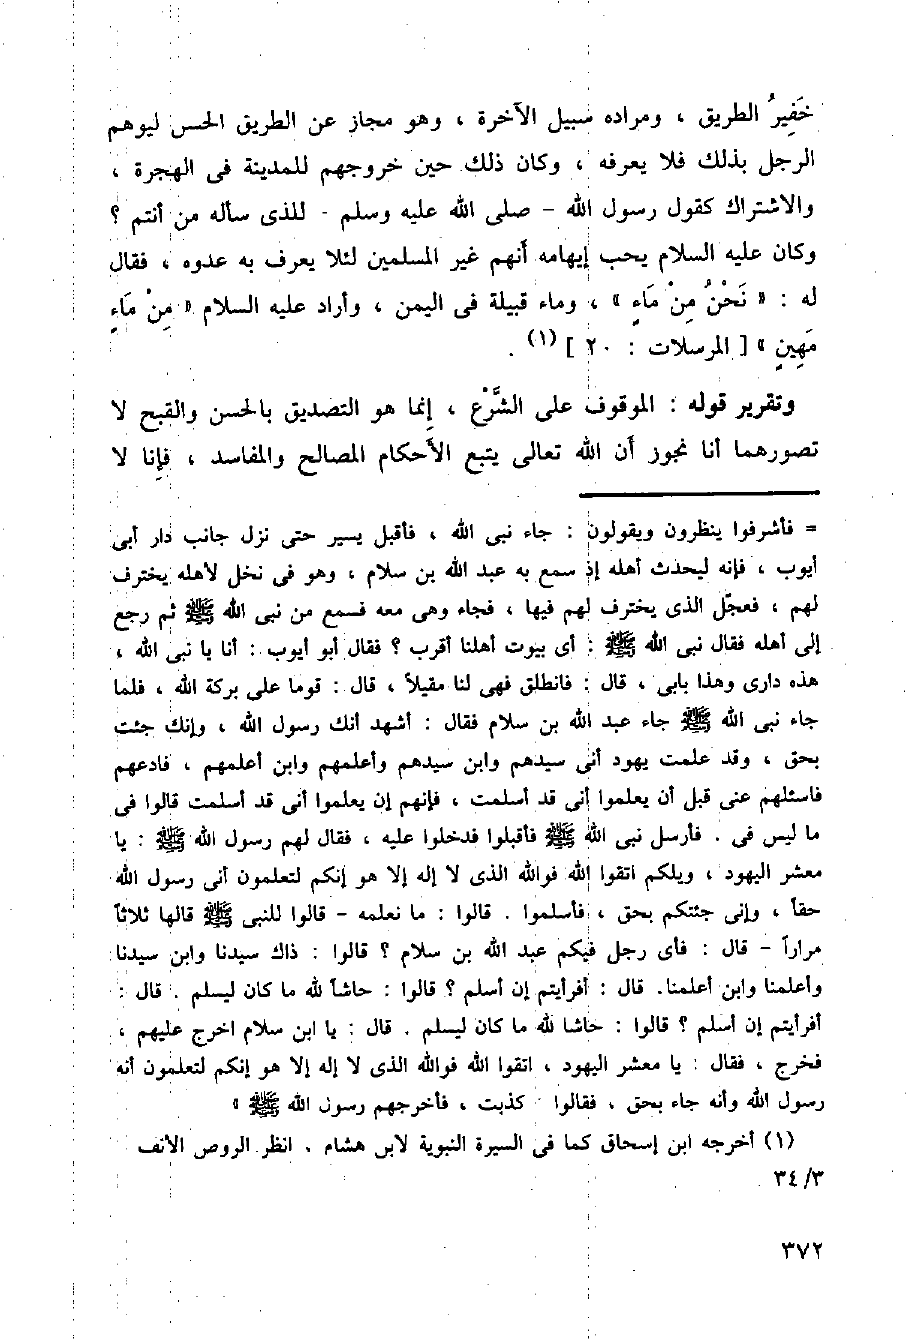 خَفِيرُ الطريق ، ومراده سبيل الآخرة ، وهو مجاز عن الطريق الحس ليوهم
الرجل بذلك فلا يعرفه ، وكان ذلك حين خروجهم للمدينة فى الهجرة ،
والاشتراك كقول رسول الله - صلى الله عليه وسلم - للذى سأله من أنتم ؟
وكان عليه السلام يحب إيهامه أنهم غير المسلمين لئلا يعرف به عدوه ، فقال
له : « نَحْنُ مِنْ مَاءٍ » ، وماء قبيلة فى اليمن ، وأراد عليه السلام « مِنْ مَاءٍ
مَهِينٍ » [ المرسلات : ٢٠ ] (١) .
وتقرير قوله : الموقوف على الشَّرْع ، إنما هو التصديق بالحسن والقبح لا
تصورهما أنا نجوز أن الله تعالى يتبع الأحكام المصالح والمفاسد ، فإنا لا
= فأشرفوا ينظرون ويقولون : جاء نبى الله ، فأقبل يسير حتى نزل جانب دار أبى
أيوب ، فإنه ليحدث أهله إذ سمع به عبد الله بن سلام ، وهو فى نخل لأهله يخترف
لهم ، فعجّل الذى يخترف لهم فيها ، فجاء وهى معه فسمع من نبى الله ﷺ ثم رجع
إلى أهله فقال نبى الله ﷺ : أى بيوت أهلنا أقرب ؟ فقال أبو أيوب : أنا يا نبى الله ،
هذه دارى وهذا بابى ، قال : فانطلق فهى لنا مقيلاً ، قال : قوما على بركة الله ، فلما
جاء نبى الله ﷺ جاء عبد الله بن سلام فقال : أشهد أنك رسول الله ، وإنك جئت
بحق ، وقد علمت يهود أنى سيدهم وابن سيدهم وأعلمهم وابن أعلمهم ، فادعهم
فاسئلهم عنى قبل أن يعلموا أنى قد أسلمت ، فإنهم إن يعلموا أنى قد أسلمت قالوا فى
ما ليس فى . فأرسل نبى الله ﷺ فأقبلوا فدخلوا عليه ، فقال لهم رسول الله ﷺ : يا
معشر اليهود ، ويلكم اتقوا الله فوالله الذى لا إله إلا هو إنكم لتعلمون أنى رسول الله
حقاً ، وإنى جئتكم بحق ، فأسلموا . قالوا : ما نعلمه - قالوا للنبى ﷺ قالها ثلاثاً
مراراً - قال : فأى رجل فيكم عبد الله بن سلام ؟ قالوا : ذاك سيدنا وابن سيدنا
وأعلمنا وابن أعلمنا. قال : أفرأيتم إن أسلم ؟ قالوا : حاشاً لله ما كان ليسلم . قال :
أفرأيتم إن أسلم ؟ قالوا : حاشا لله ما كان ليسلم . قال : يا ابن سلام اخرج عليهم ،
فخرج ، فقال : يا معشر اليهود ، اتقوا الله فوالله الذى لا إله إلا هو إنكم لتعلمون أنه
رسول الله وأنه جاء بحق ، فقالوا : كذبت ، فأخرجهم رسول الله ﷺ »
(١) أخرجه ابن إسحاق كما فى السيرة النبوية لابن هشام ، انظر الروض الأنف
٣٤/٣
٣٧٢